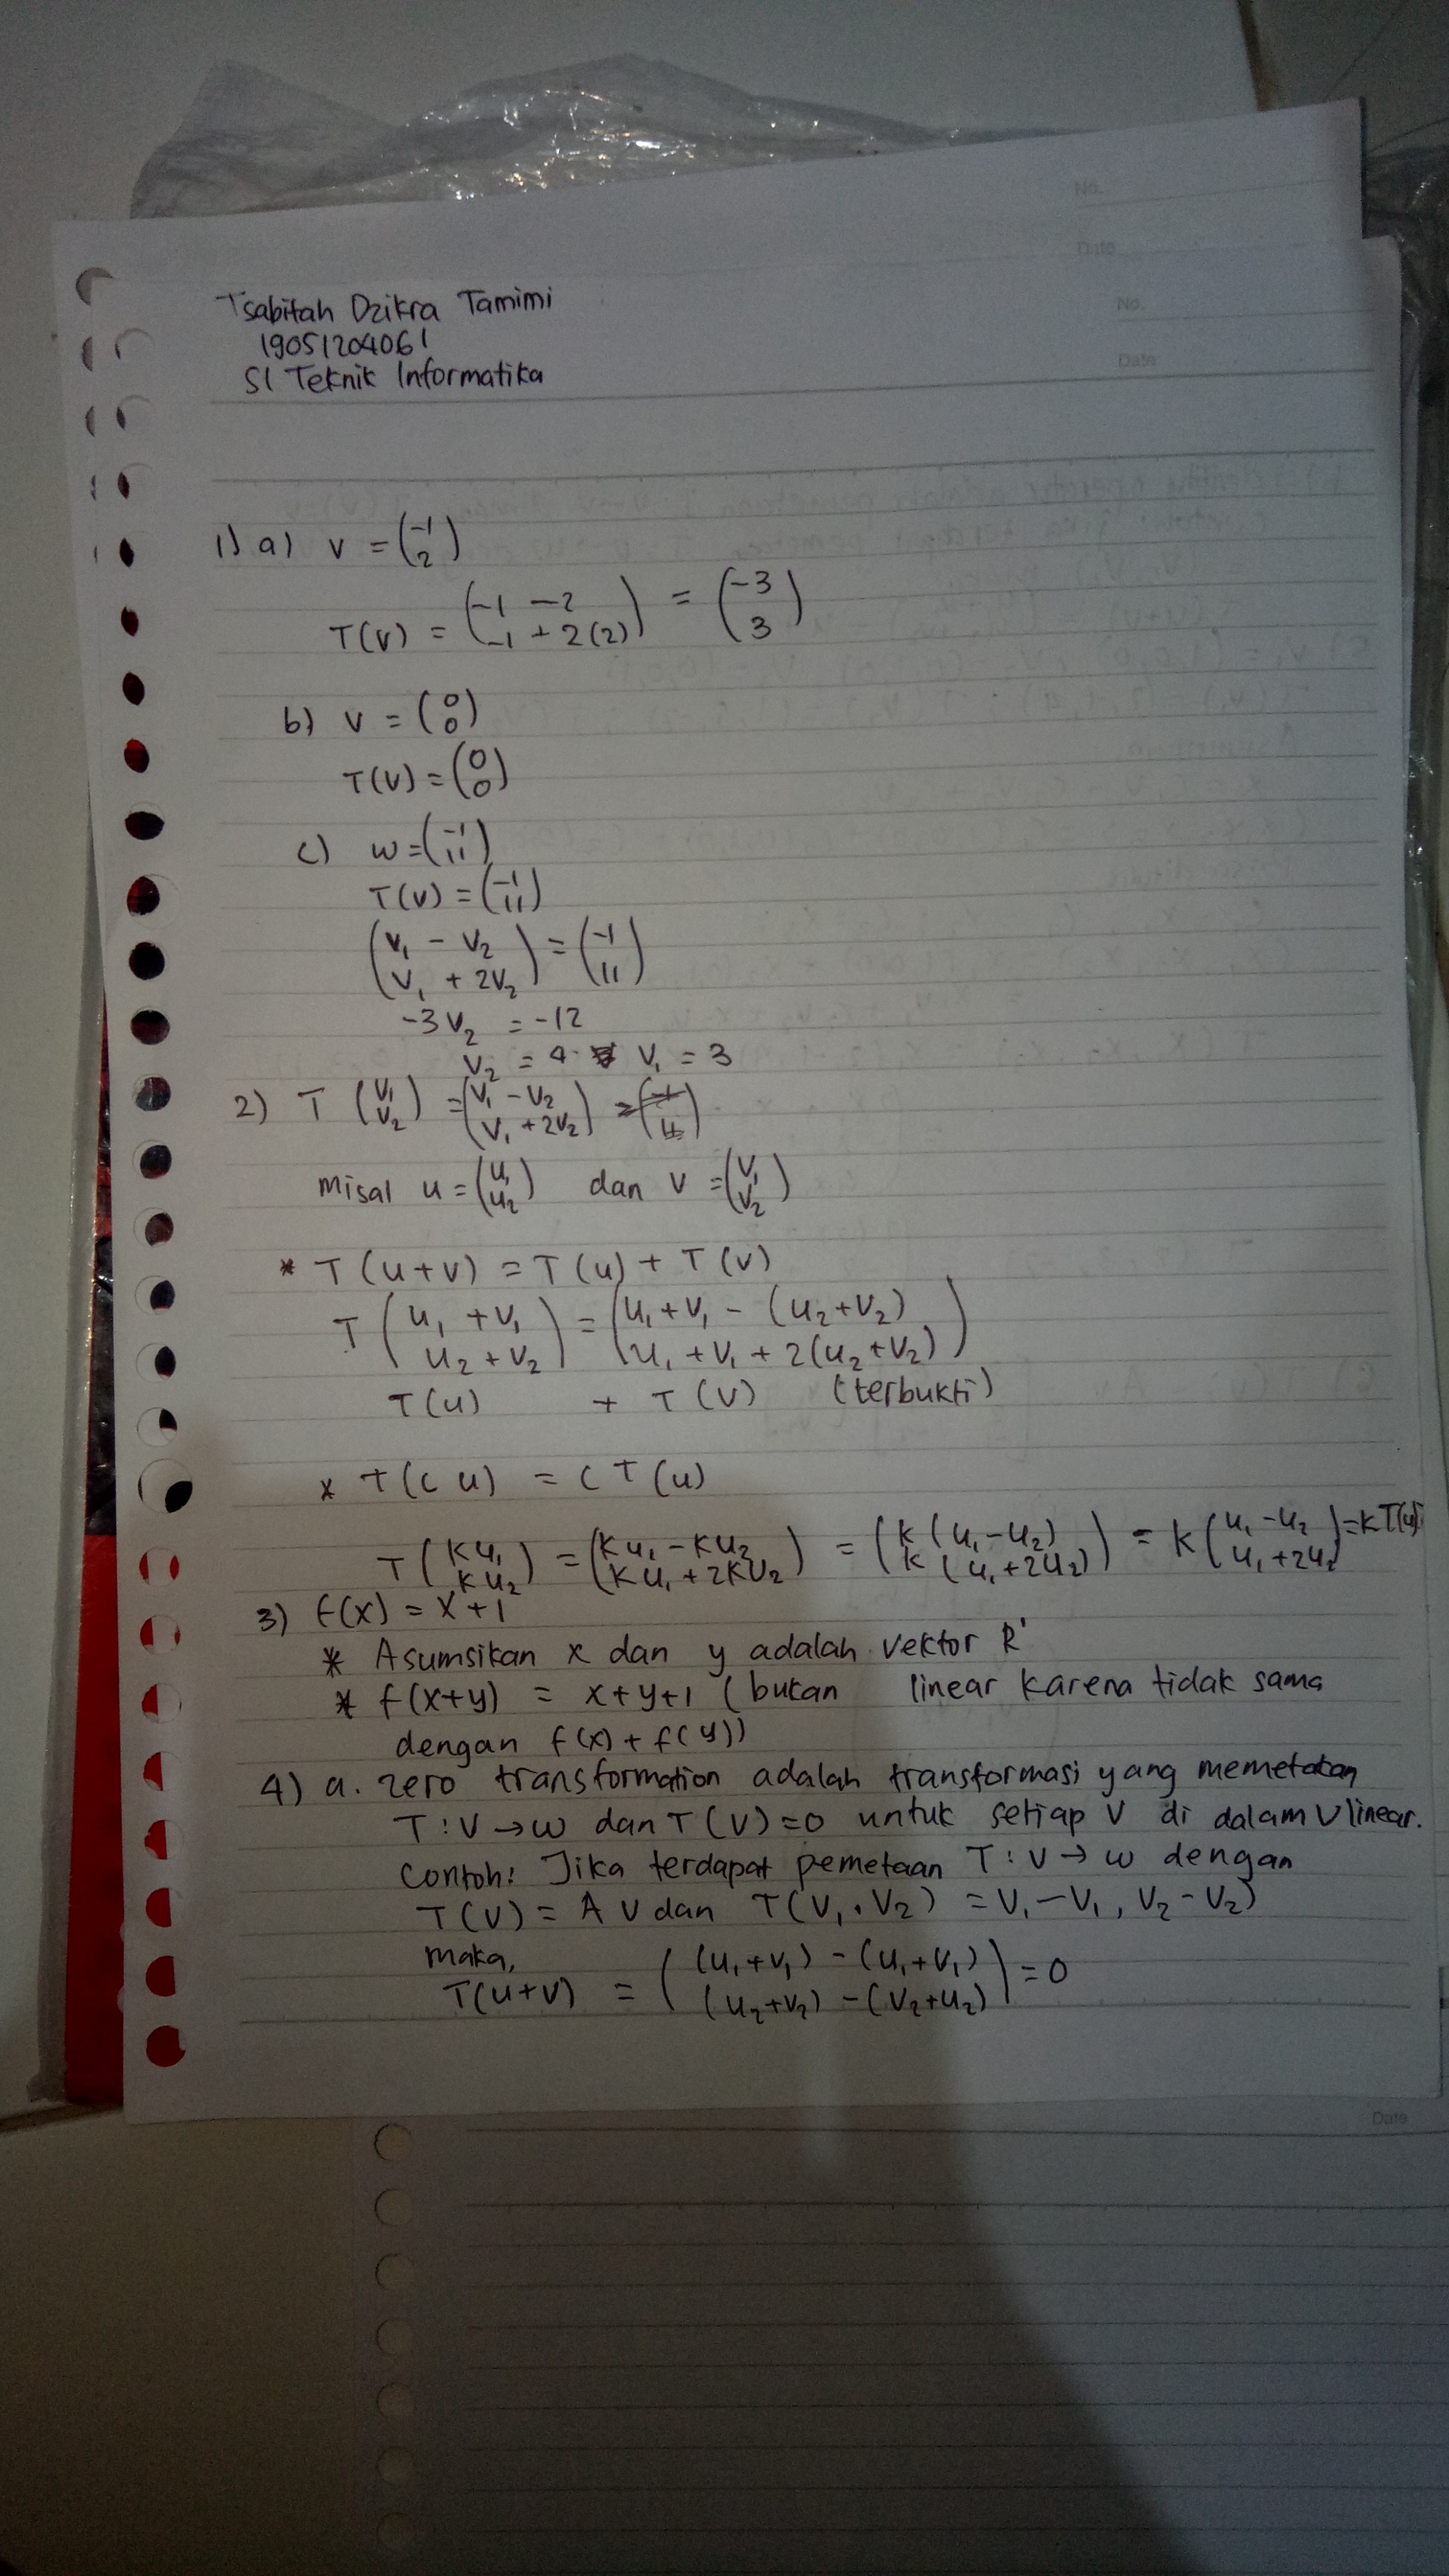 No.
Date
No.
Date
Tsabitah Dzikra Tamimi
19051204061
S1 Teknik Informatika
1) a) v = (-1 2)
T(v) = (-1 -2 -1 + 2(2)) = (-3 3)
b) v = (0 0)
T(v) = (0 0)
c) w = (-1 11)
T(v) = (-1 11)
(v₁ - v₂ v₁ + 2v₂) = (-1 11)
-3v₂ = -12
v₂ = 4 v₁ = 3
2) T (v₁ v₂) = (v₁ - v₂ v₁ + 2v₂)
misal u = (u₁ u₂) dan v = (v₁ v₂)
* T(u+v) = T(u) + T(v)
T (u₁ + v₁ u₂ + v₂) = (u₁ + v₁ - (u₂+v₂) u₁ + v₁ + 2(u₂+v₂))
T(u) + T(v) (terbukti)
* T(c u) = c T(u)
T (ku₁ ku₂) = (ku₁ - ku₂ ku₁ + 2ku₂) = (k(u₁-u₂) k(u₁+2u₂)) = k (u₁ - u₂ u₁ + 2u₂) = k T(u)
3) f(x) = x+1
* Asumsikan x dan y adalah vektor R'
* f(x+y) = x+y+1 (bukan linear karena tidak sama
dengan f(x) + f(y))
4) a. zero transformation adalah transformasi yang memetakan
T : V → W dan T(v) = 0 untuk setiap v di dalam V linear.
Contoh: Jika terdapat pemetaan T : V → W dengan
T(v) = A v dan T(v₁, v₂) = v₁ - v₁, v₂ - v₂)
maka,
T(u+v) = ((u₁+v₁) - (u₁+v₁) (u₂+v₂) - (v₂+u₂)) = 0
Date